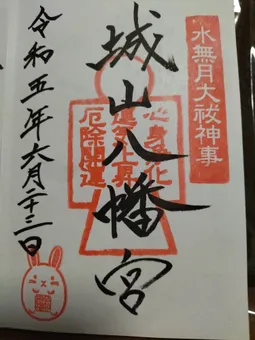 水無月大祓神事
城山八幡宮
心身浄化
運気上昇
厄除開運
令和五年六月二十三日